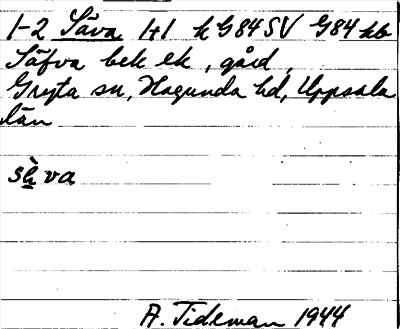 1-2 Säva 1+1 k G84SV G84kb
Säfva bek ek, gård,
Gryta sn, Hagunda hd, Uppsala
län
sὲva
A. Tideman 1944